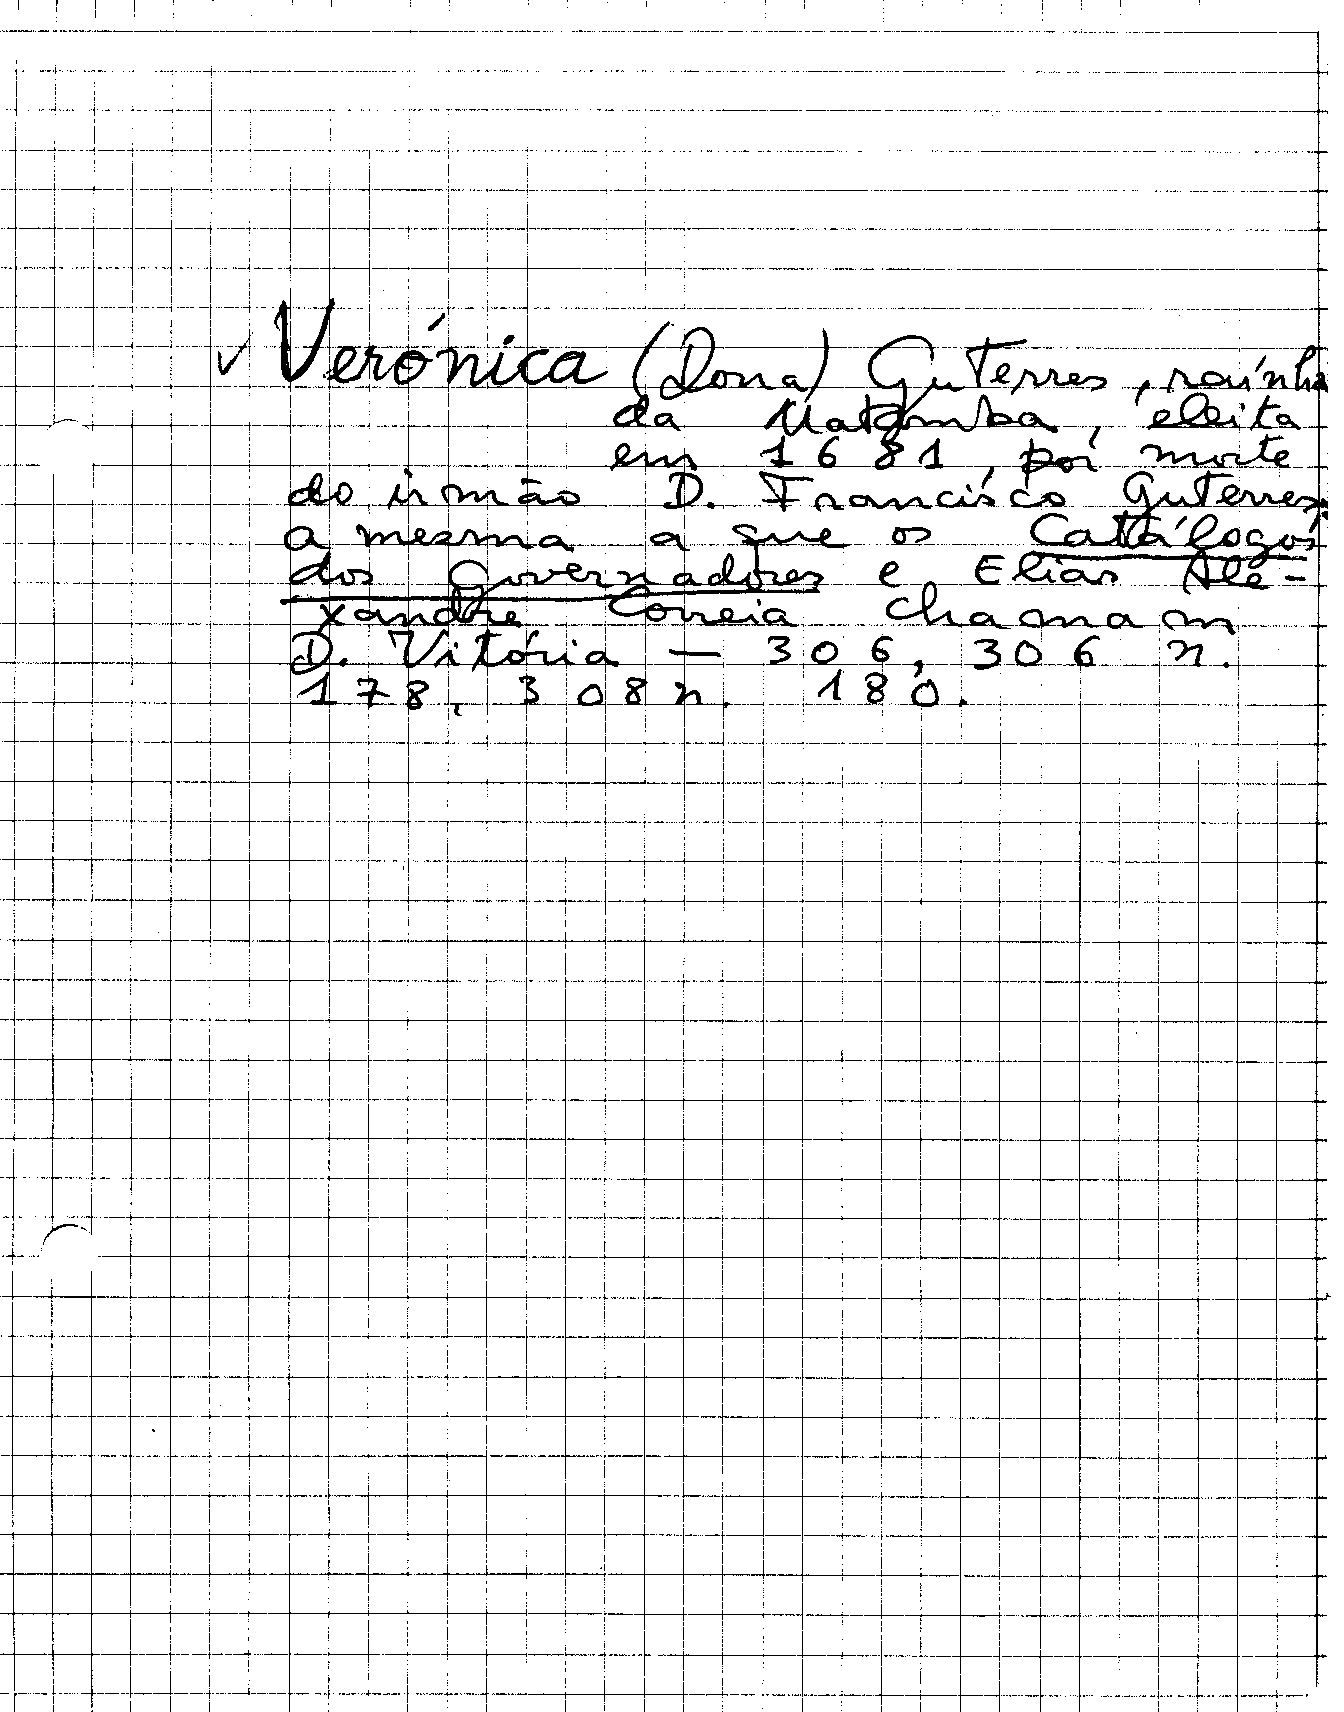 ✓ Verónica (Dona) Guterres, raínha
da Matamba, eleita
em 1681, por morte
do irmão D. Francisco Guterres:
a mesma a que os Catálogos
dos Governadores e Elias Ale-
xandre Correia chamam
D. Vitória — 306, 306 n.
178, 308 n. 180.